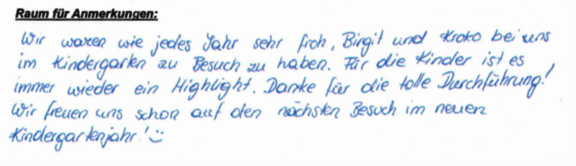 Raum für Anmerkungen:
Wir waren wie jedes Jahr sehr froh, Birgit und Kroko bei uns
im Kindergarten zu Besuch zu haben. Für die Kinder ist es
immer wieder ein Highlight. Danke für die tolle Durchführung!
Wir freuen uns schon auf den nächsten Besuch im neuen
Kindergartenjahr! ☺